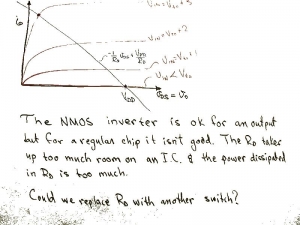 iD
VIN = VTH + 3
VIN = VTH + 2
VIN = VTH + 1
-1/RD VDS + VDD/RD
VIN < VTH
VDD
VDS = VO
The NMOS inverter is ok for an output
but for a regular chip it isn't good. The RD take
up too much room on an I.C. & the power dissipated
in RD is too much.
Could we replace RD with another switch?